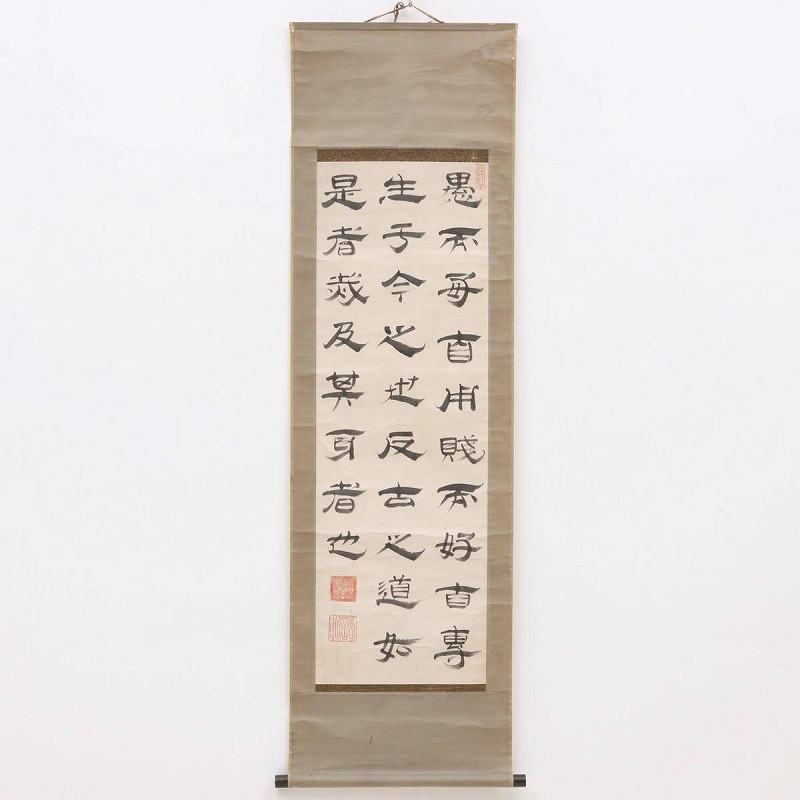 愚而好自用賤而好自專
生于今之世反古之道如
是者烖及其身者也